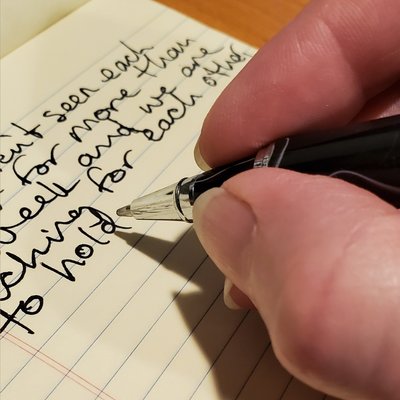 en't seen each
for more than
week and we are
ching for each other
to hold